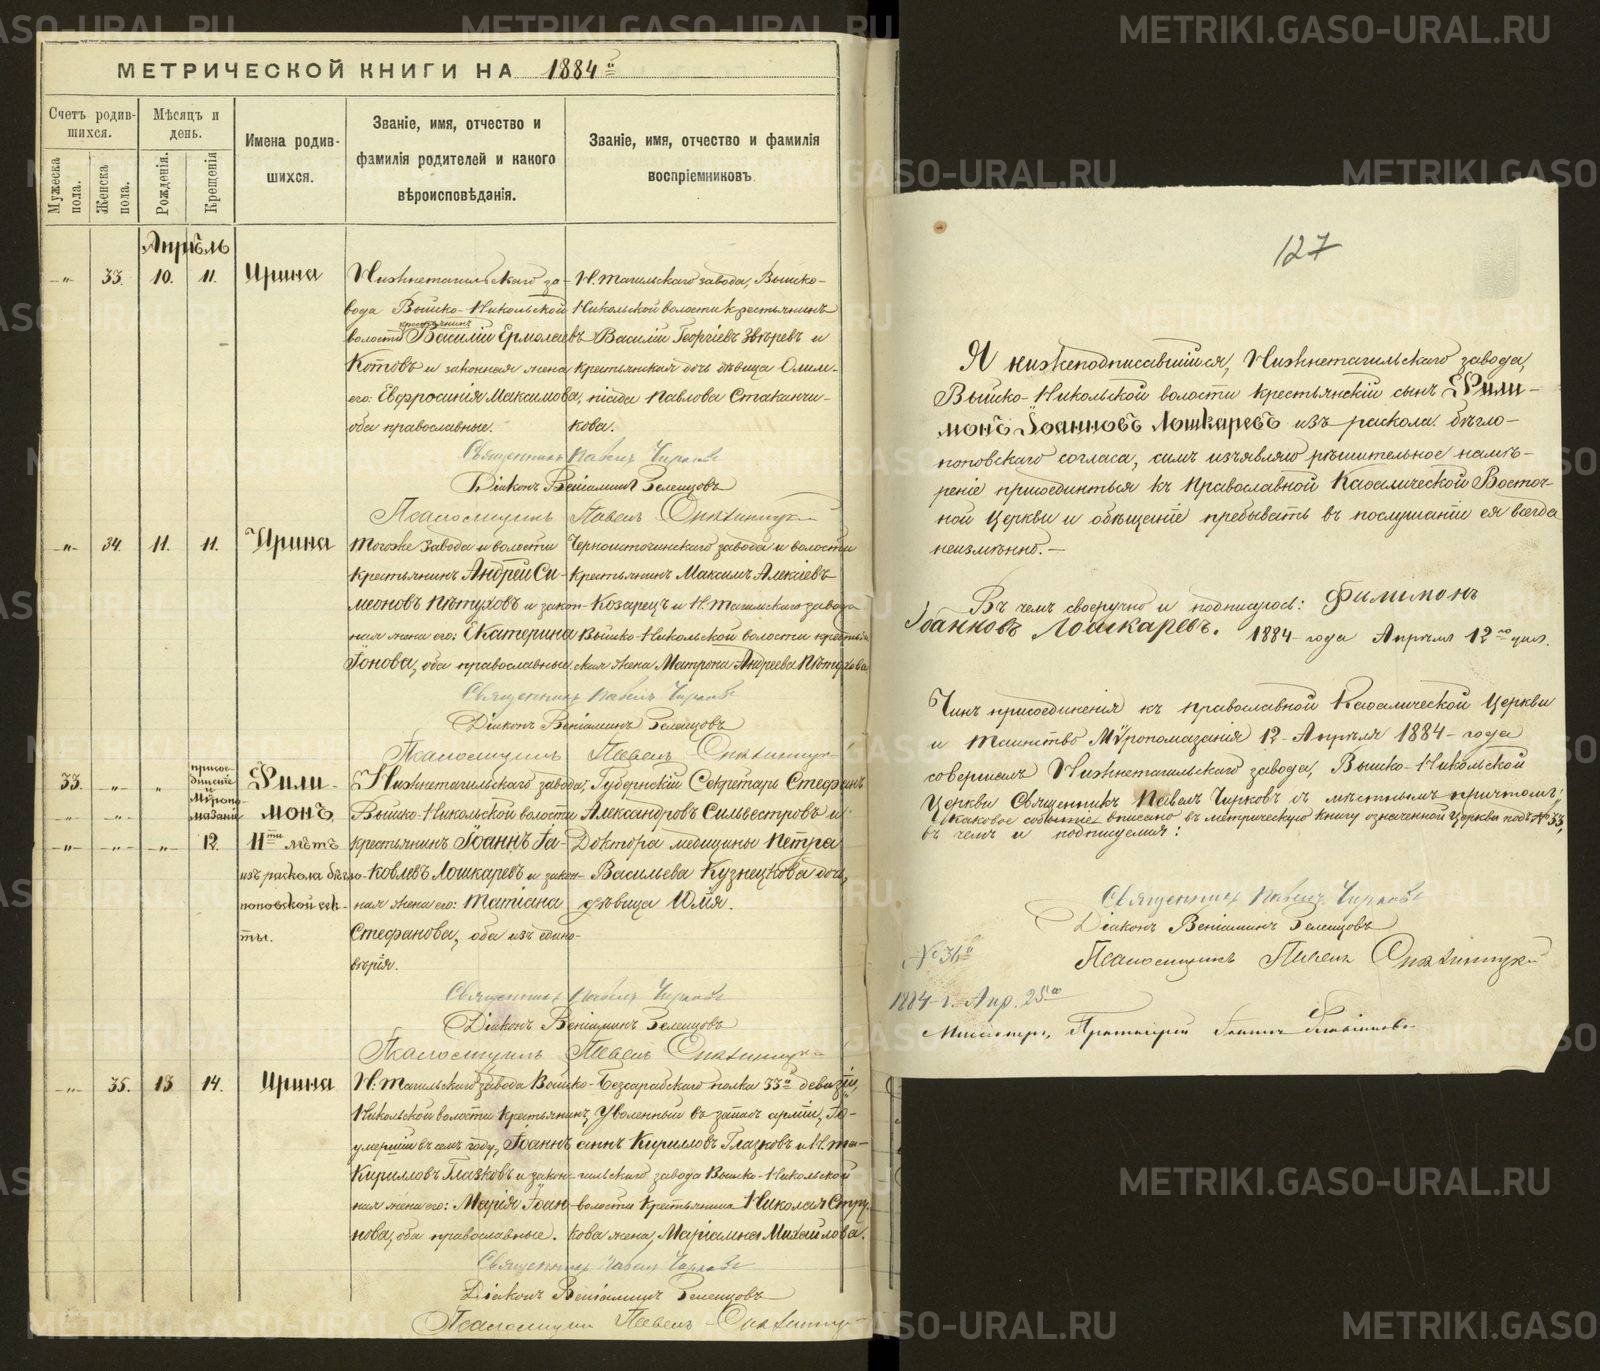 МЕТРИЧЕСКОЙ КНИГИ НА 1884й
Счетъ родив-
шихся.
Мѣсяцъ и
день.
Имена родив-
шихся.
Званіе, имя, отчество и
фамилія родителей и какого
вѣроисповѣданія.
Званіе, имя, отчество и фамилія
воспріемниковъ.
Мужеска
пола.
Женска
пола.
Рожденія.
Крещенія
Апрѣль
-„- 33. 10. 11. Ирина
Нижнетагильскаго за-
вода Выйско-Никольской
крестьянинъ
волости Василій Ермолаевъ
Котовъ и законная жена
его: Евфросинія Максимова,
оба православные.
Н. Тагильскаго завода, Выйско-
Никольской волости крестьянинъ
Василій Георгіевъ Звѣревъ и
крестьянская дочь дѣвица Олим-
піада Павлова Стаканчи-
кова.
Священникъ Павелъ Чирковъ
Діаконъ Веніаминъ
Псаломщикъ Павелъ
-„- 34. 11. 11. Ирина
Тогоже завода и волости
крестьянинъ Андрей Си-
меоновъ Пѣтуховъ и закон-
ная жена его: Екатерина
Іонова, оба православные.
Черноисточинскаго завода и волости
крестьянинъ Максимъ Алексіевъ
Козарецъ и Н. Тагильскаго завода
Выйско-Никольской волости крестьян
ская жена Матрона Андреева Пѣтухова
Священникъ Павелъ Чирковъ
Діаконъ Веніаминъ
Псаломщикъ Павелъ
33. -„- „
присое-
диненіе
и
Мѵропо-
мазаніе
12.
Фили-
монъ,
11ти лѣтъ
изъ раскола бѣгло-
поповской сек-
ты.
Нижнетагильскаго завода,
Выйско-Никольской волости
крестьянинъ Іоаннъ Іа-
ковлевъ Лошкаревъ и закон-
ная жена его: Татіана
Стефанова, оба изъ едино-
вѣрія.
Губернскій Секретарь Стефанъ
Александровъ Сильвестровъ и
Доктора медицины Петра
Васильева Кузнецкова дочь,
дѣвица Юлія.
Священникъ Павелъ Чирковъ
Діаконъ Веніаминъ
Псаломщикъ Павелъ
-„- 35. 13 14. Ирина
Н. Тагильскаго завода Выйско-
Никольской волости крестьянинъ,
умершій въ семъ году, Іоаннъ
Кирилловъ Глазковъ и закон-
ная жена его: Марія Іоан-
нова, оба православные.
Безсарабскаго полка 33й девизіи,
уволенный въ запасъ арміи, Іо-
аннъ Кирилловъ Глазковъ и Н. Та-
гильскаго завода Выйско-Никольской
волости крестьянина Николая Стру
кова жена, Маріамна Михайлова.
Священникъ Павелъ Чирковъ
Діаконъ Веніаминъ
Псаломщикъ Павелъ
127
Я нижеподписавшійся, Нижнетагильскаго завода,
Выйско-Никольской волости крестьянскій сынъ Фили-
монъ Іоанновъ Лошкаревъ изъ раскола бѣгло-
поповскаго согласа, симъ изъявляю рѣшительное намѣ-
реніе присоединиться къ Православной Каѳалической Восточ-
ной Церкви и обѣщаніе пребывать въ послушаніи ея всегда
неизмѣнно. —
Въ чемъ своеручно и подписуюсь: Филимонъ
Іоанновъ Лошкаревъ. 1884 года Апрѣля 12го дня.
Чинъ присоединенія къ православной Каѳалической Церкви
и таинство Мѵропомазанія 12 Апрѣля 1884 года
совершилъ Нижнетагильскаго завода, Выйско-Никольской
Церкви Священникъ Павелъ Чирковъ съ мѣстнымъ причтомъ;
каковое событие вписано въ метрическую книгу означенной Церкви подъ № 33,
въ чемъ и подписуемся:
Священникъ Павелъ Чирковъ
Діаконъ Веніаминъ
Псаломщикъ Павелъ
№ 36й
1884 г. Апр. 25го